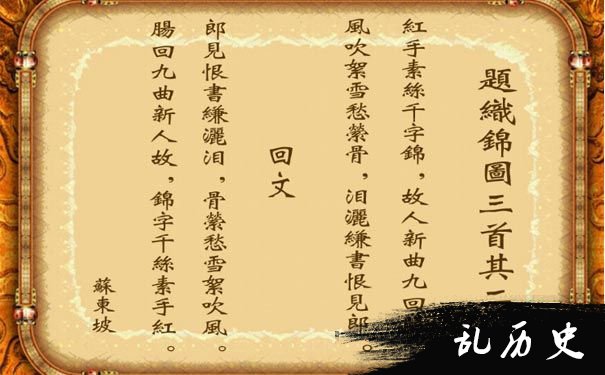 題織錦圖三首其
紅手素絲千字錦，故人新曲九回
風吹絮雪愁縈骨，淚灑縑書恨見郎。
回文
郎見恨書縑灑淚，骨縈愁雪絮吹風。
腸回九曲新人故，錦字千絲素手紅。
蘇東坡
乱历史